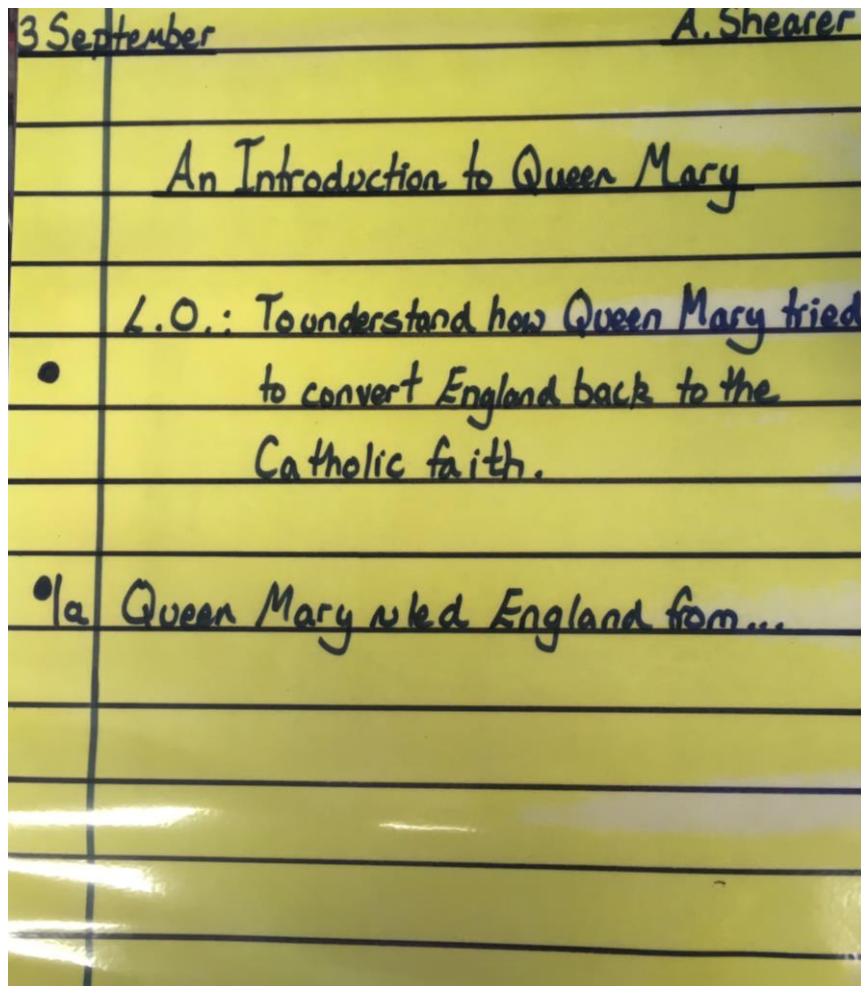 3 September A. Shearer
An Introduction to Queen Mary
L.O.: To understand how Queen Mary tried
to convert England back to the
Catholic faith.
1a Queen Mary ruled England from...